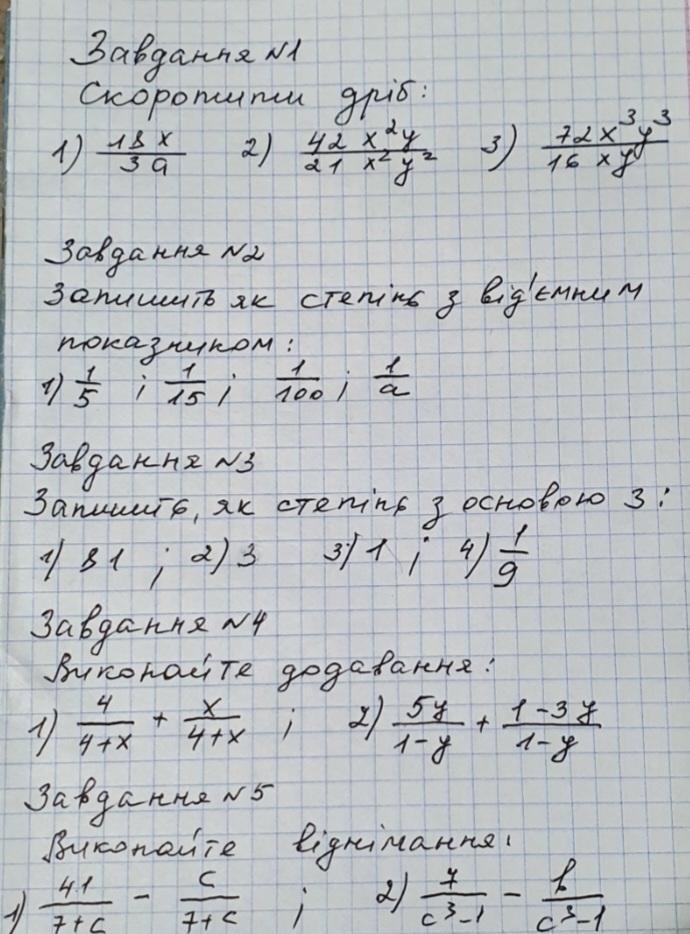 Завдання №1
Скоротити дріб:
1) 18x/3a 2) 42x²y/21x²y² 3) 72x³y³/16xy
Завдання №2
Запишіть як степінь з від'ємним
показником:
1) 1/5 ; 1/15 ; 1/100 ; 1/a
Завдання №3
Запишіть, як степінь з основою 3:
1) 81 ; 2) 3 3) 1 ; 4) 1/9
Завдання №4
Виконайте додавання:
1) 4/(4+x) + x/(4+x) ; 2) 5y/(1-y) + (1-3y)/(1-y)
Завдання №5
Виконайте віднімання:
1) 41/(7+c) - c/(7+c) ; 2) 7/(c³-1) - b/(c³-1)